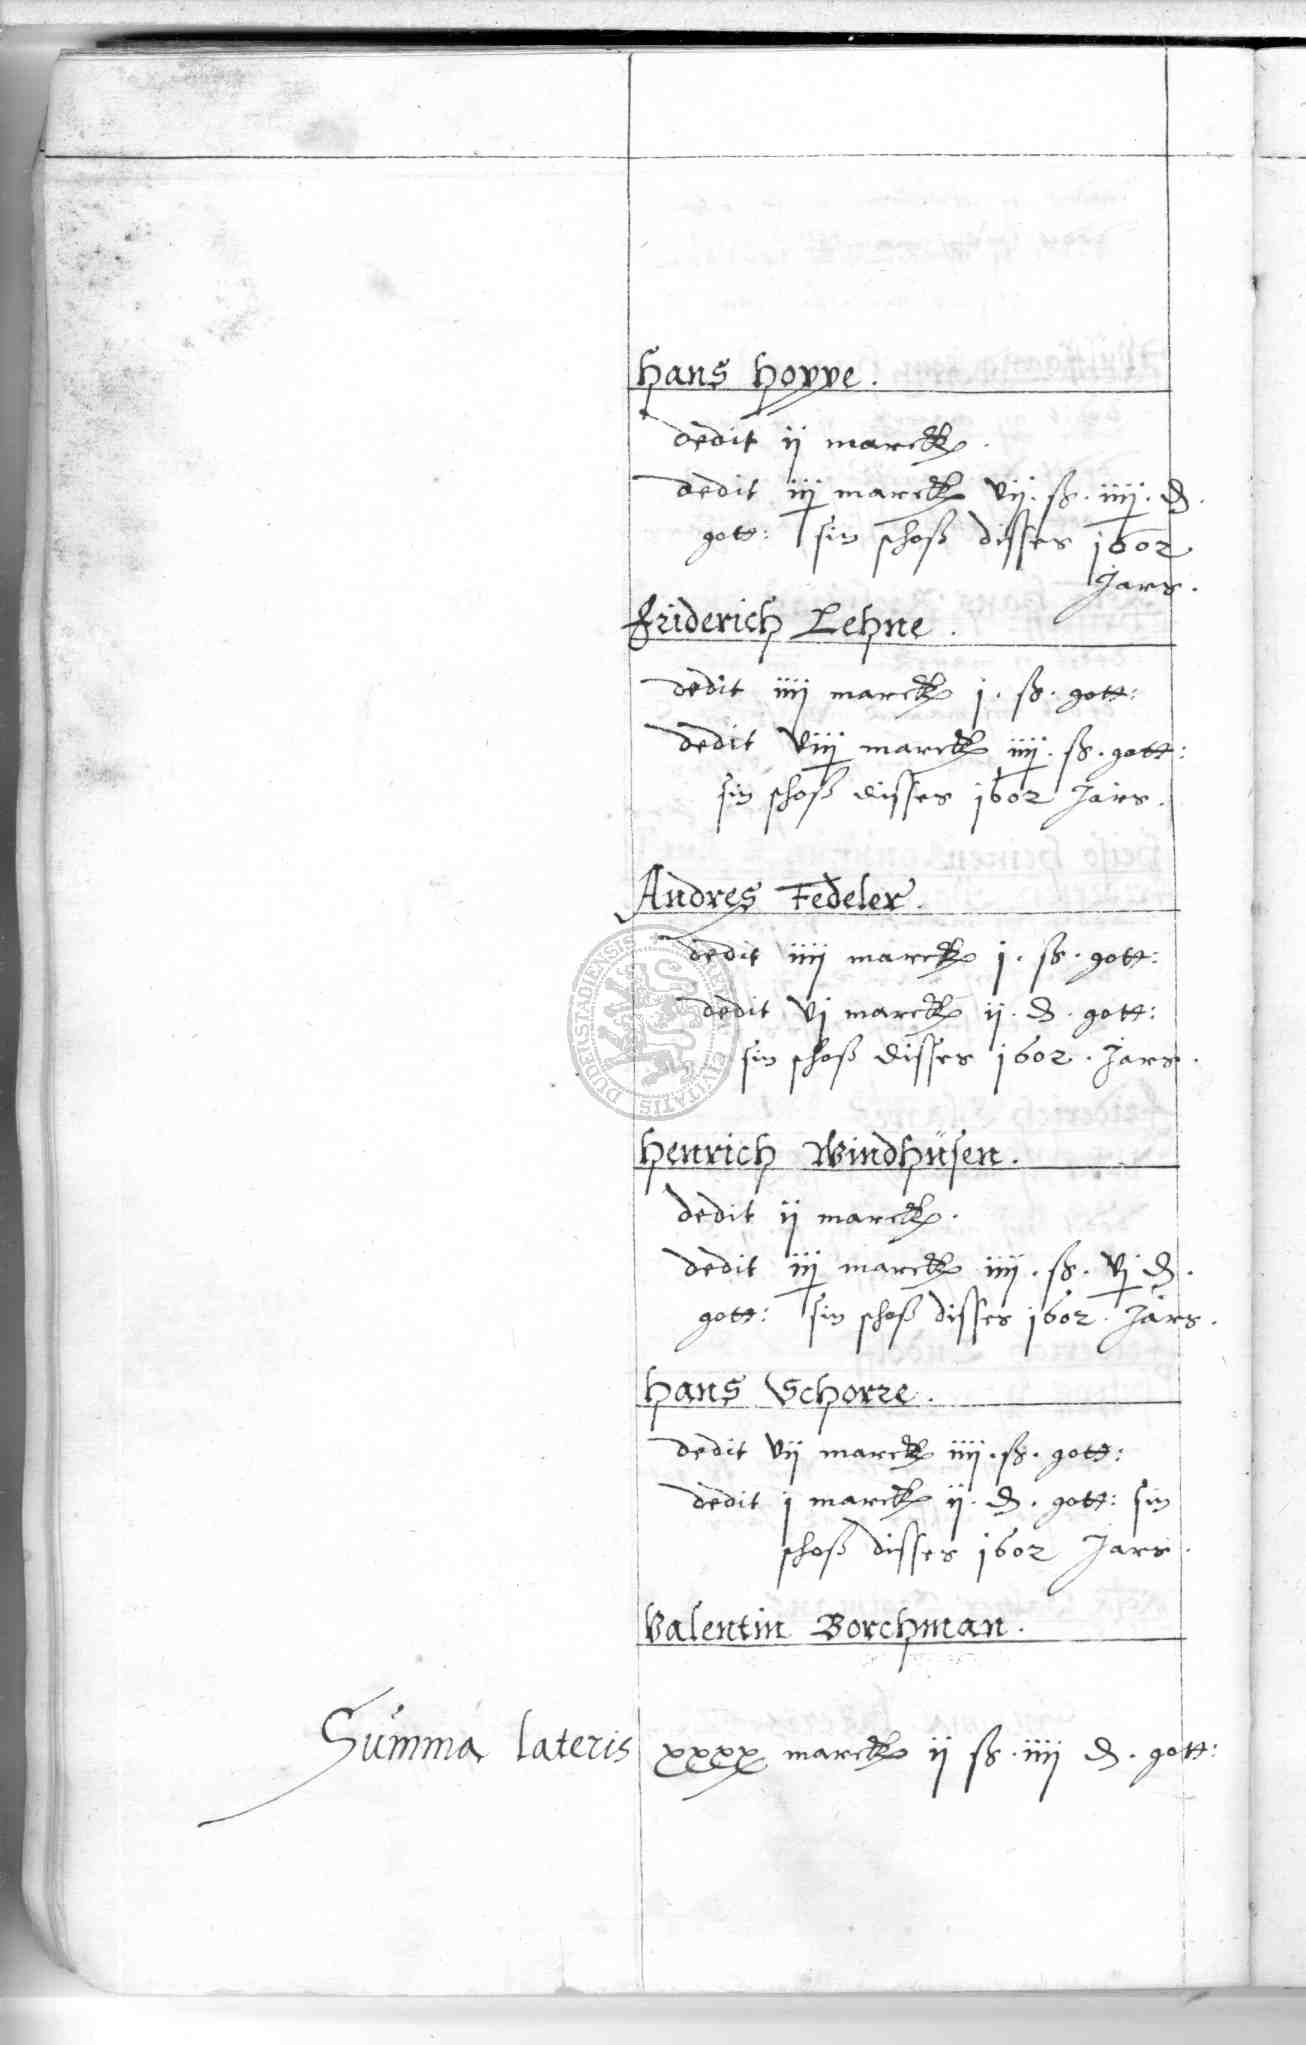 Hans Hoppe.
dedit ij marck.
dedit iij marck vij. ß. iiij. ₰.
gott: sin schoß disses 1602
Jars.
Friderich Lehne.
dedit iiij marck j. ß. gott:
dedit viij marck iiij. ß. gott:
sin schoß disses 1602 Jars.
Andres Fedeler.
dedit iiij marck j. ß. gott:
dedit vj marck ij. ₰. gott:
sin schoß disses 1602. Jars.
CIVITATIS DUDERSTADIENSIS
Henrich Windhusen.
dedit ij marck.
dedit iij marck iiij. ß. vj ₰.
gott: sin schoß disses 1602. Jars.
Hans Schorre.
dedit vij marck iiij. ß. gott:
dedit j marck ij. ₰. gott: sin
schoß disses 1602 Jars.
Valentin Borchman.
Summa lateris xxxx marck ij ß. iiij ₰. gott: